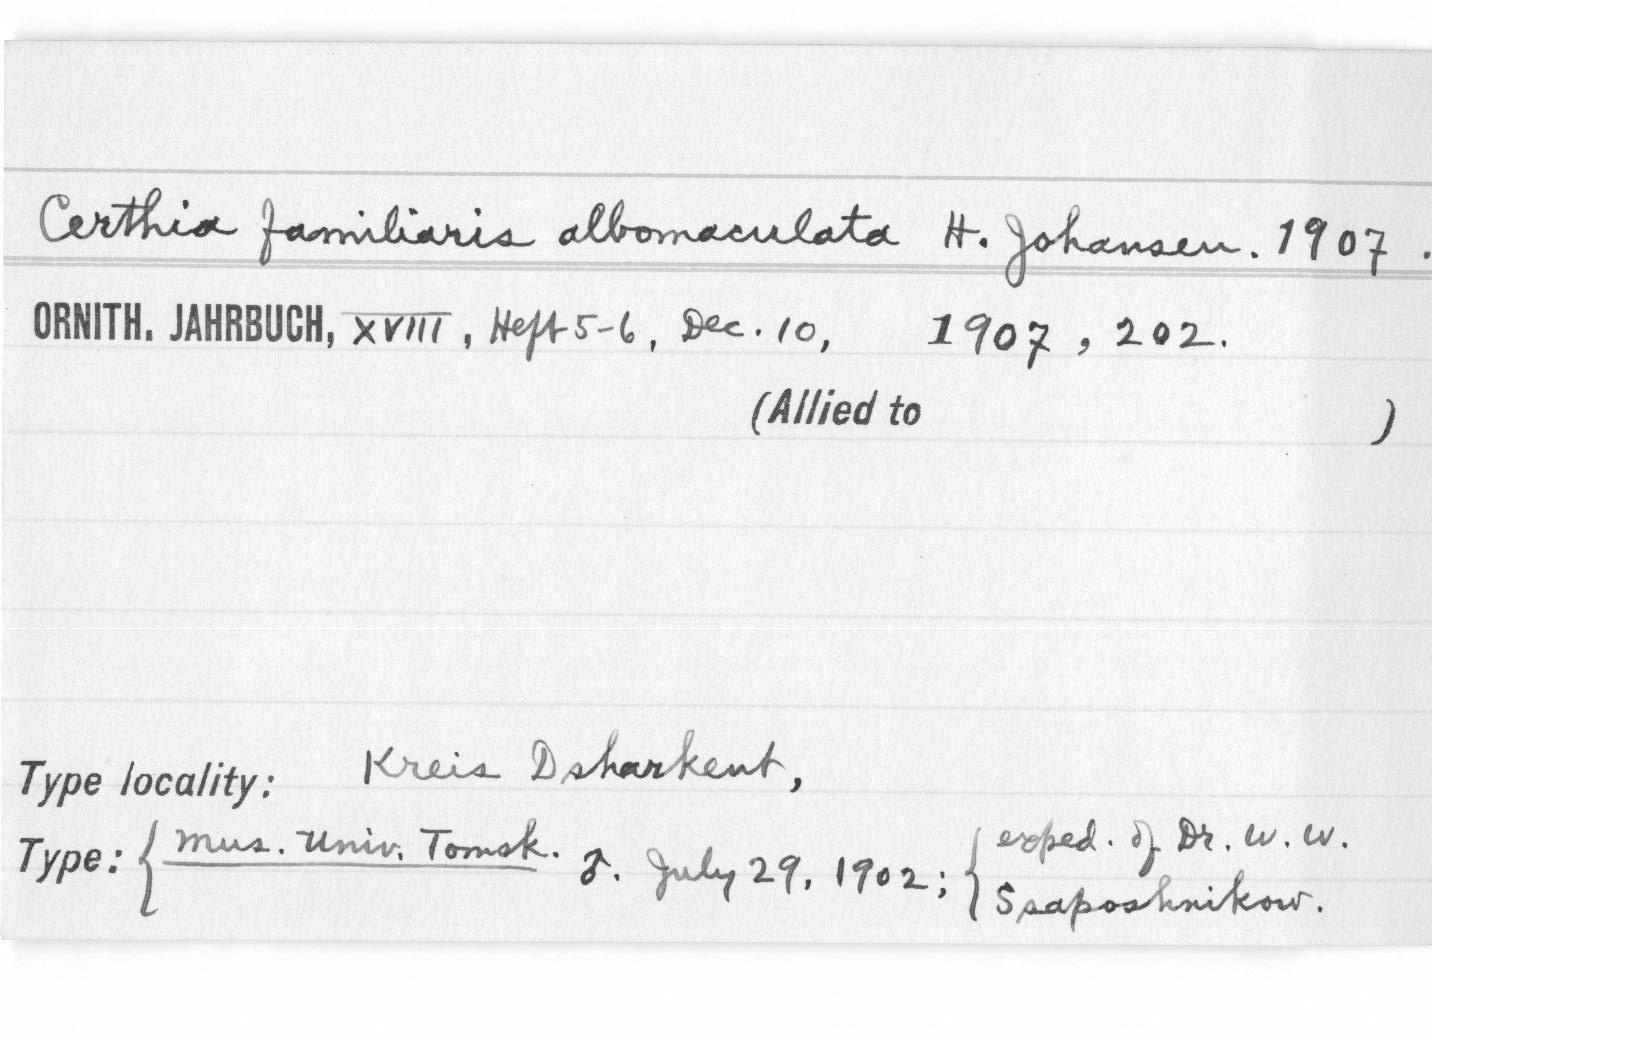 Certhia familiaris albomaculata H. Johansen. 1907.
ORNITH. JAHRBUCH, XVIII, Heft 5-6, Dec. 10, 1907, 202.
(Allied to )
Type locality: Kreis Dsharkent,
Type: { Mus. Univ. Tomsk. ♂. July 29, 1902; { exped. of Dr. W. W.
Ssaposhnikow.